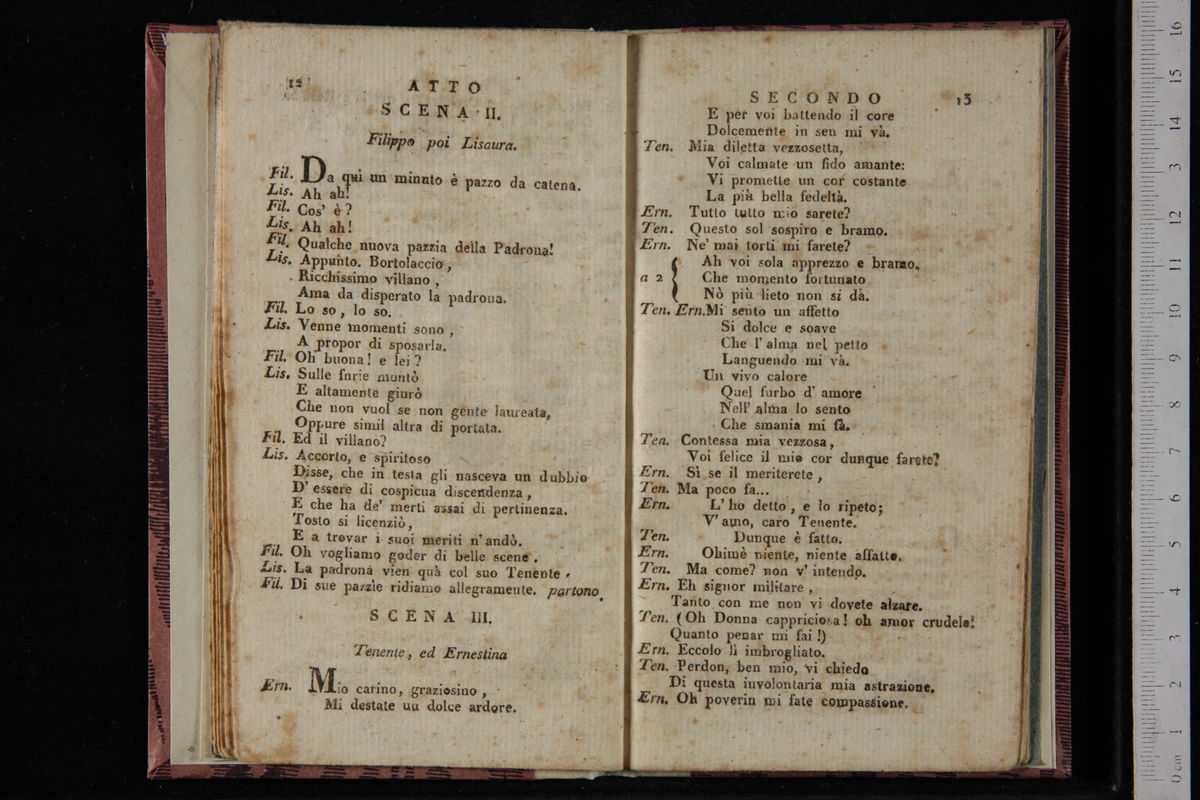 12
ATTO
SCENA II.
Filippo poi Lisaura.
Fil. Da qui un minuto è pazzo da catena.
Lis. Ah ah!
Fil. Cos' è?
Lis. Ah ah!
Fil. Qualche nuova pazzia della Padrona!
Lis. Appunto. Bortolaccio,
Ricchissimo villano,
Ama da disperato la padrona.
Fil. Lo so, lo so.
Lis. Venne momenti sono,
A propor di sposarla.
Fil. Oh buona! e lei?
Lis. Sulle furie montò
E altamente giurò
Che non vuol se non gente laureata,
Oppure simil altra di portata.
Fil. Ed il villano?
Lis. Accorto, e spiritoso
Disse, che in testa gli nasceva un dubbio
D' essere di cospicua discendenza,
E che ha de' merti assai di pertinenza.
Tosto si licenziò,
E a trovar i suoi meriti n' andò.
Fil. Oh vogliamo goder di belle scene.
Lis. La padrona vien quà col suo Tenente.
Fil. Di sue pazzie ridiamo allegramente. partono.
SCENA III.
Tenente, ed Ernestina
Ern. Mio carino, graziosino,
Mi destate uu dolce ardore.
SECONDO
13
E per voi battendo il core
Dolcemente in sen mi và.
Ten. Mia diletta vezzosetta,
Voi calmate un fido amante:
Vi promette un cor costante
La più bella fedeltà.
Ern. Tutto tutto mio sarete?
Ten. Questo sol sospiro e bramo.
Ern. Ne' mai torti mi farete?
Ah voi sola apprezzo e bramo.
a 2 { Che momento fortunato
Nò più lieto non si dà.
Ten. Ern. Mi sento un affetto
Si dolce e soave
Che l' alma nel petto
Languendo mi và.
Un vivo calore
Quel furbo d' amore
Nell' alma lo sento
Che smania mi fà.
Ten. Contessa mia vezzosa,
Voi felice il mio cor dunque farete?
Ern. Sì se il meriterete,
Ten. Ma poco fa...
Ern. L' ho detto, e lo ripeto;
V' amo, caro Tenente.
Ten. Dunque è fatto.
Ern. Ohimè niente, niente affatto.
Ten. Ma come? non v' intendo.
Ern. Eh signor militare,
Tanto con me non vi dovete alzare.
Ten. (Oh Donna cappriciosa! oh amor crudele!
Quanto penar mi fai!)
Ern. Eccolo lì imbrogliato.
Ten. Perdon, ben mio, vi chiedo
Di questa involontaria mia astrazione.
Ern. Oh poverin mi fate compassione.
0 cm 1 2 3 4 5 6 7 8 9 10 11 12 13 14 15 16